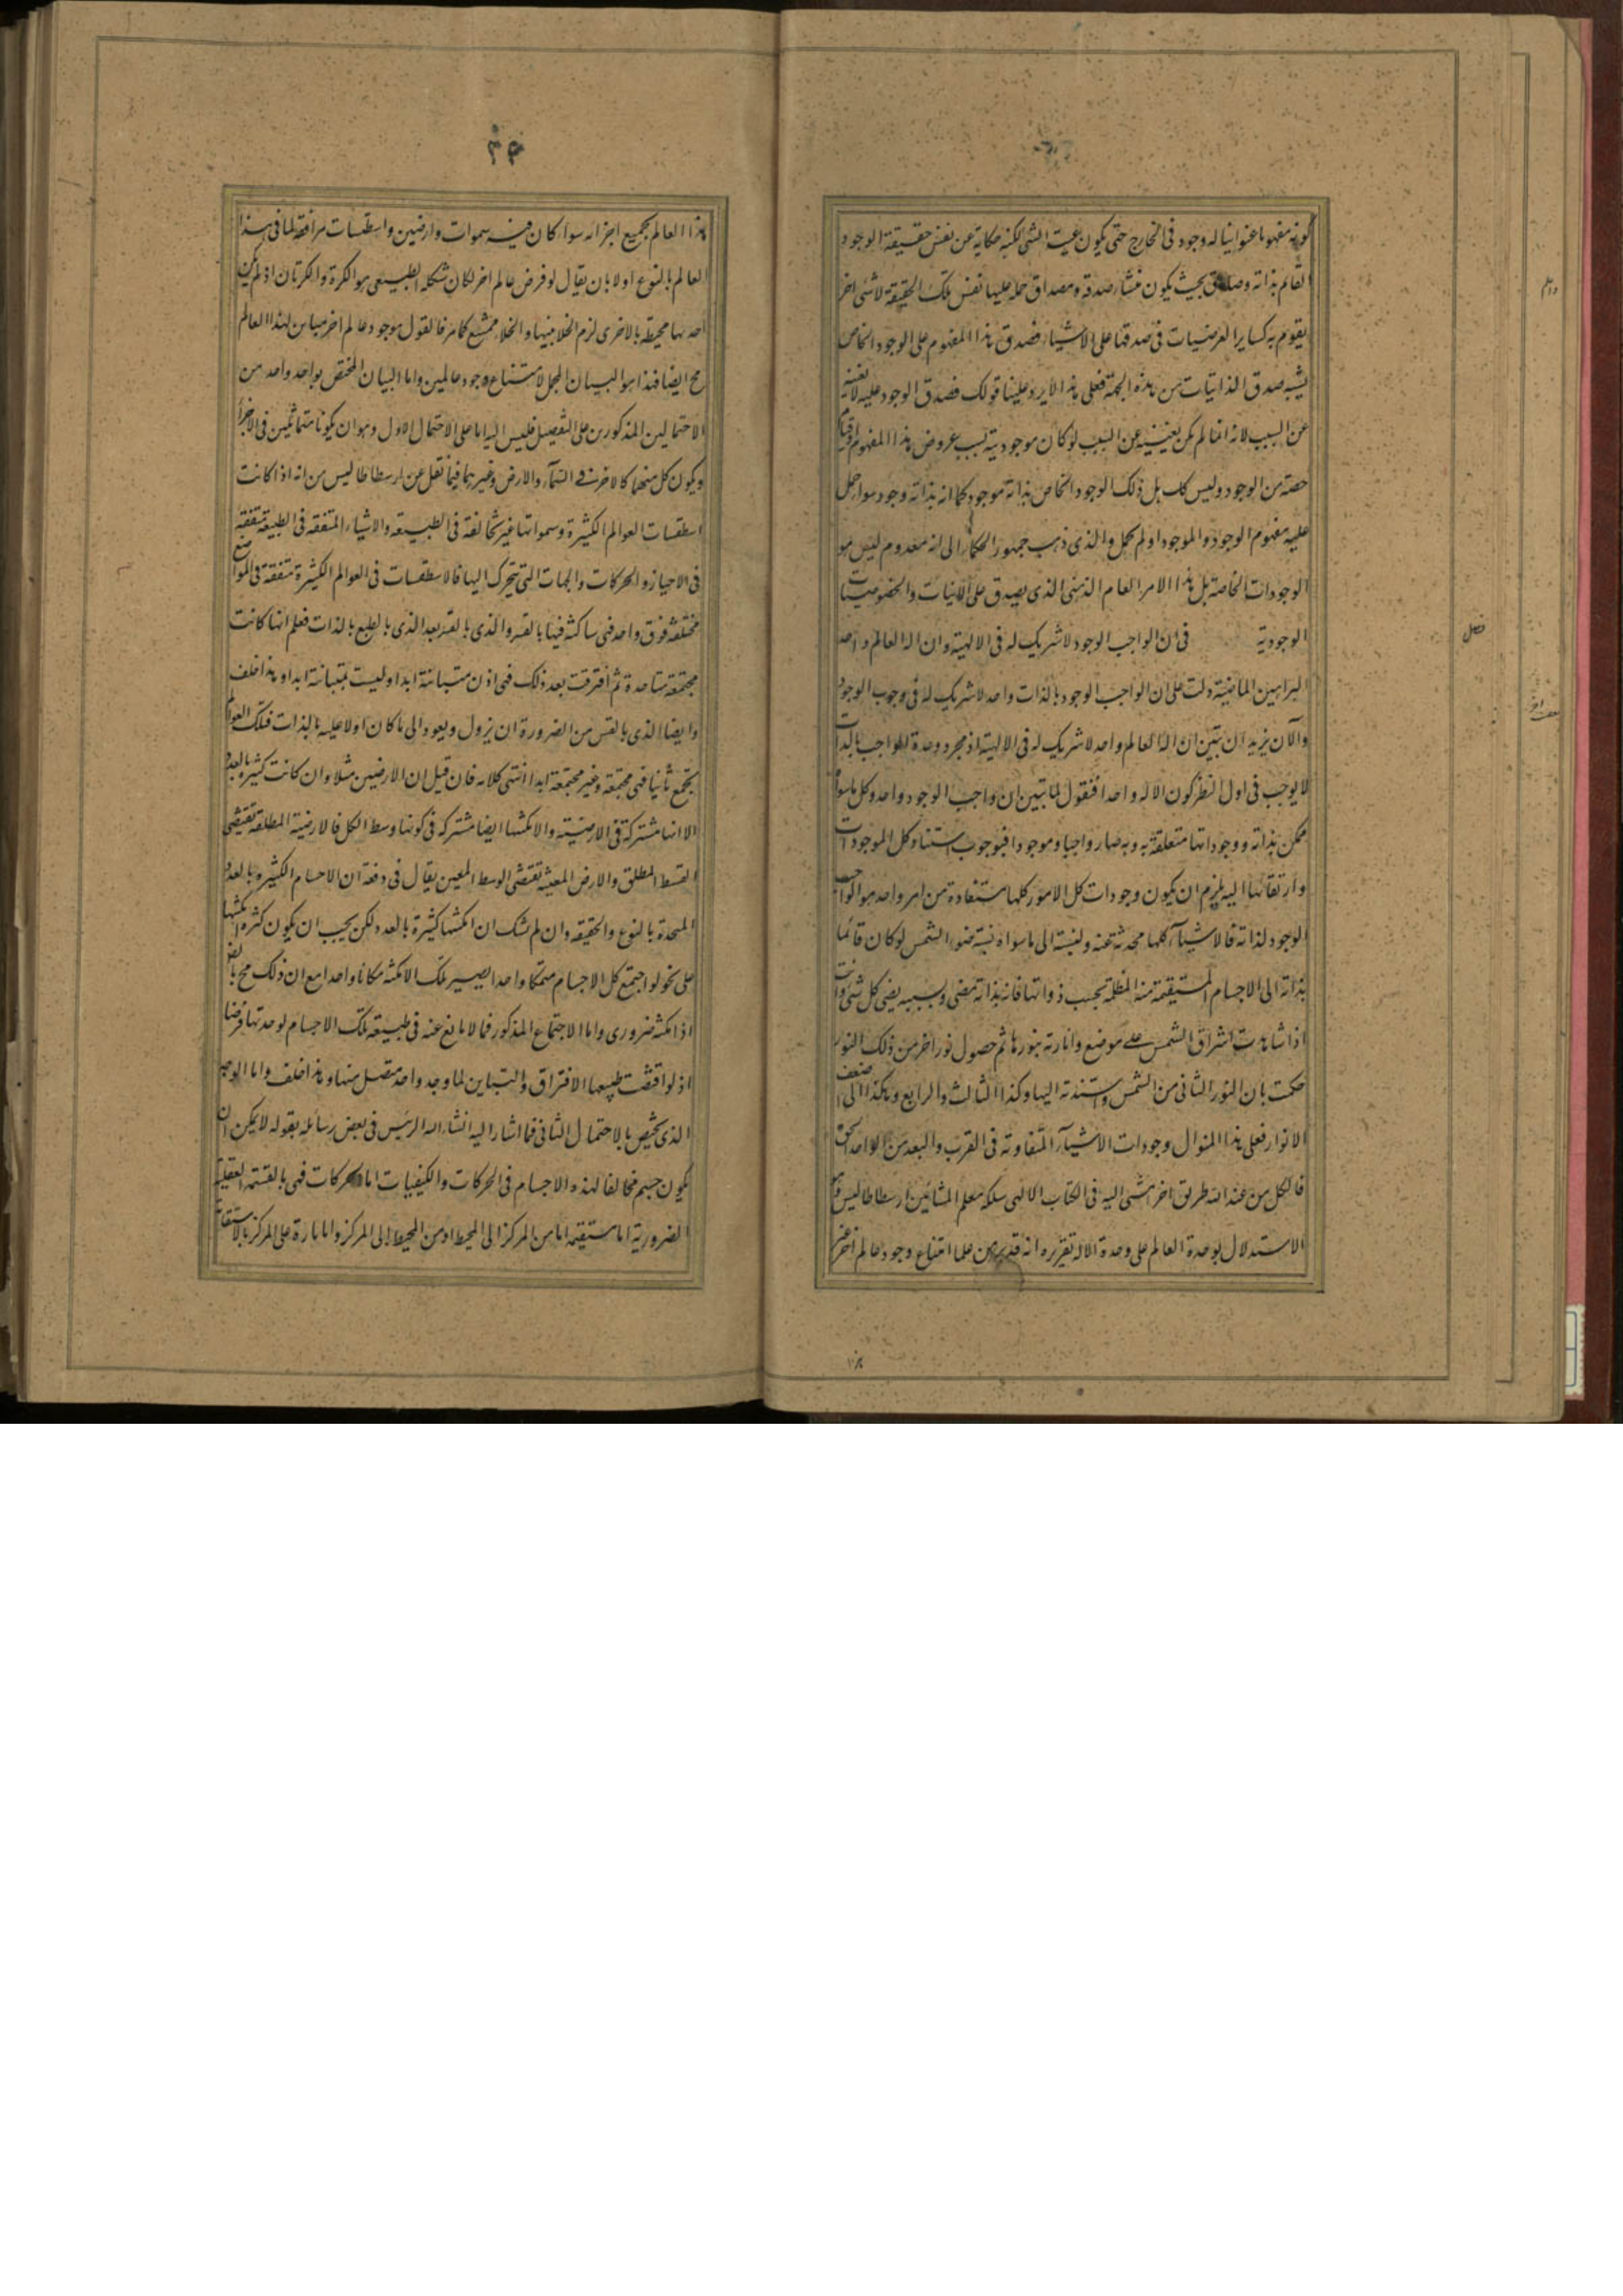 كونه مفهوما عنوانيا له وجود في الخارج حتى يكون عين الشي لكنه حكاية عن نفس حقيقة الوجود
القائم بذاته وصادق بحيث يكون منشاء صدقه ومصداق حمله عليها نفس تلك الحقيقة لا شي اخر
يقوم به كساير العرضيات في صدقها على الاشياء فصدق هذا المفهوم على الوجود الخاص
يشبه صدق الذاتيات من هذه الجهة فعلى هذا لا يرد علينا قولك فصدق الوجود عليه لا يغنيه
عن السبب لانه انما لم يكن يغنيه عن السبب لو كان موجوديته بسبب عروض هذا المفهوم او قيام
حصة من الوجود وليس كك بل ذلك الوجود الخاص بذاته موجود كما انه بذاته وجود سواء حمل
عليه مفهوم الوجود والموجود او لم يحمل والذي ذهب جمهور الحكماء الى انه معدوم ليس هو
الوجودات الخاصة بل هذا الامر العام الذهني الذي يصدق على الانيات والخصوصيات
الوجودية في ان الواجب الوجود لا شريك له في الالهية وان اله العالم واحد
فصل
البراهين الماضية دلت على ان الواجب الوجود بالذات واحد لا شريك له في وجوب الوجود
والآن نريد ان نبين ان اله العالم واحد لا شريك له في الالهية اذ مجرد وحدة الواجب بالذات
لا يوجب في اول النظر كون الاله واحدا فنقول لما تبين ان واجب الوجود واحد وكل ما سواه
ممكن بذاته ووجوداتها متعلقة به وبه صار واجبا وموجودا فبوجوب استناد كل الموجودات
وارتقائها اليه يلزم ان يكون وجودات كل الامور كلها مستفادة من امر واحد هو الواجب
الوجود لذاته فالاشياء كلها محدثة عنه ونسبته الى ما سواه نسبة ضوء الشمس لو كان قائما
بذاته الى الاجسام المستضيئة منه المظلمة بحسب ذواتها فانه بذاته مضي وبسببه يضي كل شي وانت
اذا شاهدت اشراق الشمس على موضع وانارته بنورها ثم حصول نور اخر من ذلك النور
حكمت بان النور الثاني من الشمس واسندته اليها وكذا الثالث والرابع وهكذا الى اضعف
الانوار فعلى هذا المنوال وجودات الاشياء المتفاوتة في القرب والبعد من الواحد الحق
فالكل من عند الله طريق اخر مشى اليه في الكتاب الالهى سلكه معلم المشائين ارسطاطاليس وهو
الاستدلال بوحدة العالم على وحدة الاله تقريره انه قد برهن على امتناع وجود عالم اخر غير
٣٩
هذا العالم بجميع اجزائه سواء كان فيه سموات وارضين واسطقسات موافقة لما في هذا
العالم بالنوع اولا بان يقال لو فرض عالم اخر لكان شكله الطبيعى هو الكرة والكرتان اذ لم يكن
احديهما محيطة بالاخرى لزم الخلا بينهما والخلاء ممتنع كما مر فالقول بوجود عالم اخر مباين لهذا العالم
مح ايضا فهذا هو البيان المجمل لامتناع وجود عالمين واما البيان المختص بواحد واحد من
الاحتمالين المذكورين على التفصيل فليس اليه اما على الاحتمال الاول وهو ان يكونا متماثلين في الاجزاء
ويكون كل منهما كالاخر في السماء والارض وغيرهما فيما نقل عن ارسطاطاليس من انه اذا كانت
اسطقسات العوالم الكثيرة وسمواتها غير مخالفة في الطبيعة والاشياء المتفقة في الطبيعة متفقة
في الاحياز والحركات والجهات التي يتحرك اليها فالاسطقسات في العوالم الكثيرة متفقة في المواضع
مختلفة فوق واحد فهي ساكنة فيها بالقسر والذي بالقسر بعد الذي بالطبع بالذات فعلم انها كانت
مجتمعة متاحدة ثم افترقت بعد ذلك فهي اذن متباينة ابدا وليست بمتباينة ابدا وهذا خلف
وايضا الذي بالقسر من الضرورة ان يزول ويعود الى ما كان اولا عليه بالذات فتلك العوالم
يجتمع ثانيا فهي مجتمعة وغير مجتمعة ابدا انتهى كلامه فان قيل ان الارضين مثلا وان كانت كثيرة بالعدد
الا انها مشتركة في الارضية والامكنتها ايضا مشتركة في كونها وسط الكل فالارضية المطلقة تقتضي
الوسط المطلق والارض المعينة تقتضى الوسط المعين يقال في دفعه ان الاجسام الكثيرة بالعدد
المتحدة بالنوع والحقيقة وان لم نشك ان امكنتها كثيرة بالعدد لكن يجب ان يكون كثرة امكنتها
على نحو لو اجتمع كل الاجسام متمكنا واحدا يصير تلك الامكنة مكانا واحدا مع ان ذلك مح بالض
اذ امكنه ضرورى واما الاجتماع المذكور فما لا مانع عنه في طبيعة تلك الاجسام لوحدتها فرضا
اذ لو اقتضت طبيعتها الافتراق والتباين لما وجد واحد متصل منها وهذا خلف واما الوجه
الذي يختص بالاحتمال الثاني فما اشار اليه الشيخ الرئيس في بعض رسائله بقوله لا يمكن ان
يكون جسم مخالفا لهذه الاجسام في الحركات والكيفيات اما الحركات فهي بالقسمة العقلية
الضرورية اما مستقيمة اما من المركز الى المحيط او من المحيط الى المركز واما مارة على المركز بالاستقامة